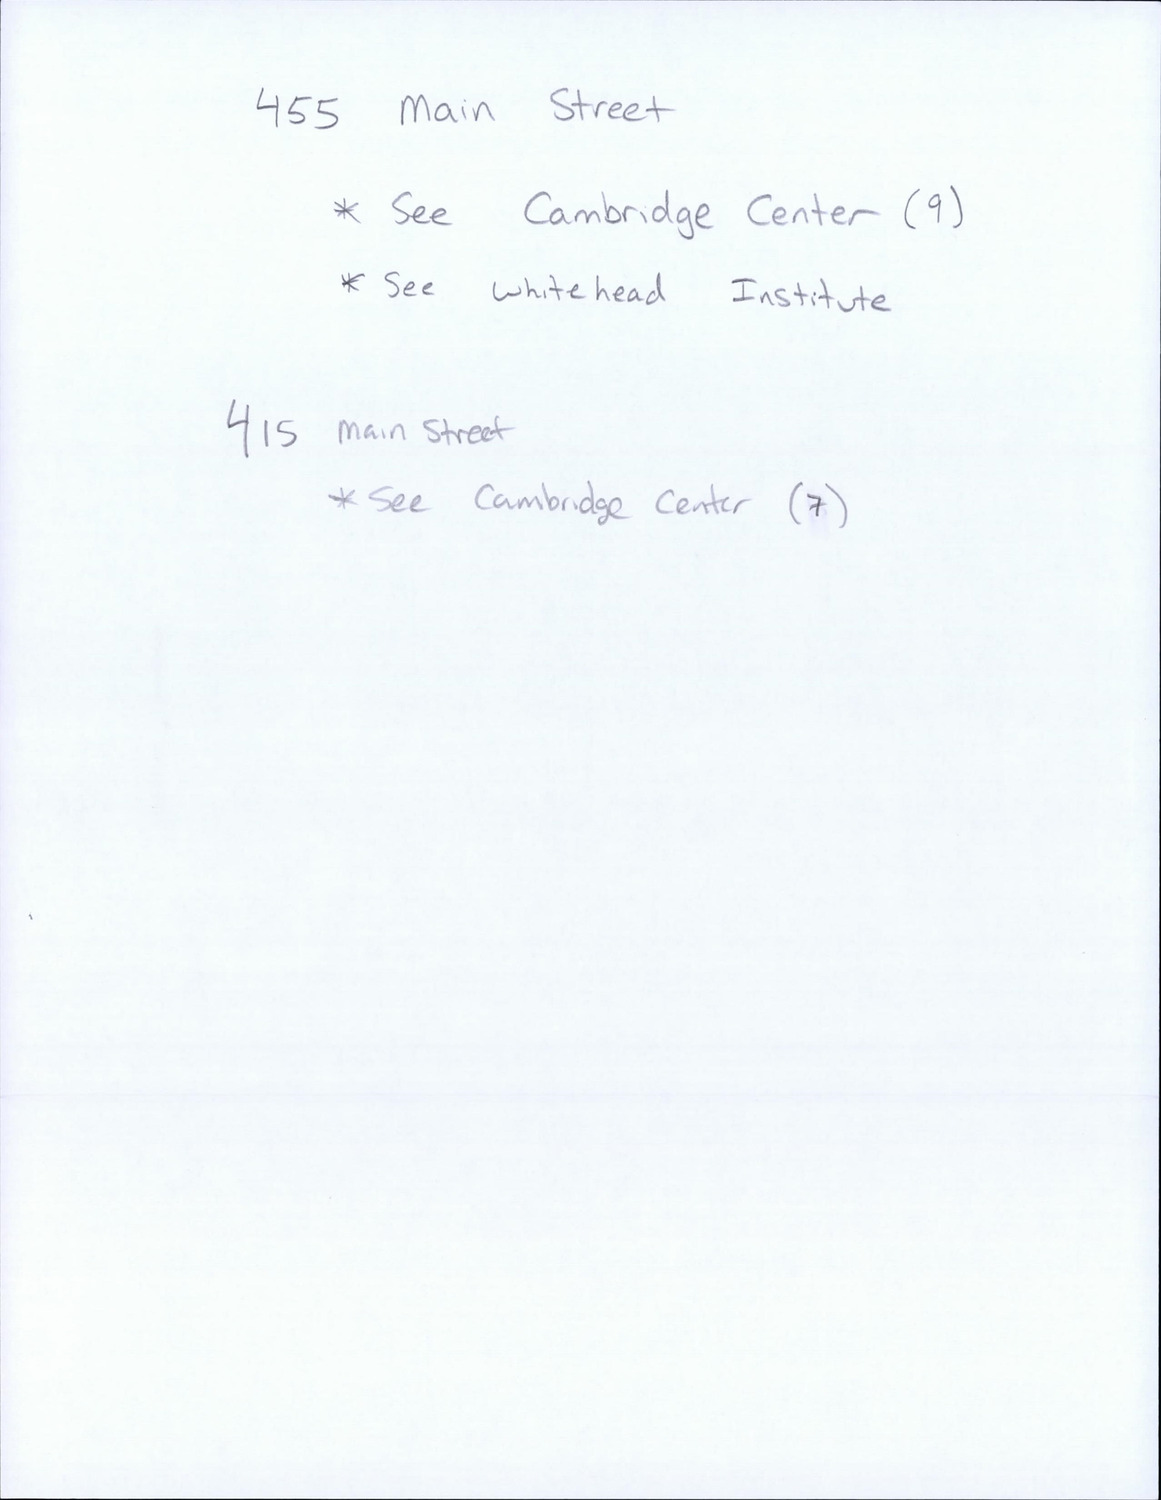 455 Main Street
* See Cambridge Center (9)
* See Whitehead Institute
415 Main Street
* See Cambridge Center (7)